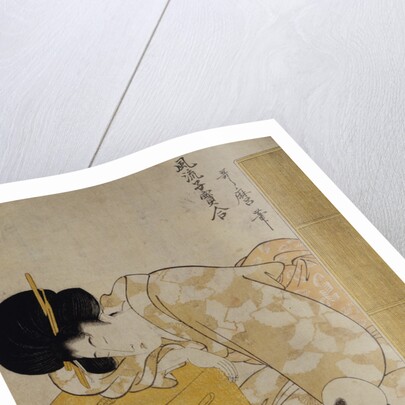 風流子寶合
哥麿筆